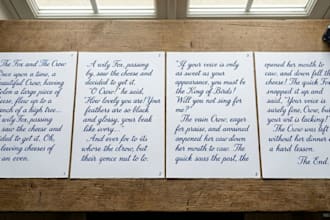 The Fox and The Crow
Once upon a time, a
beautiful Crow, having
stolen a large piece of
cheese, flew up to a
branch of a high tree...
A wily Fox, passing
saw the cheese and
decided to get it. Oh,
leaving cheeses of
an even.
A wily Fox, passing
by, saw the cheese and
decided to get it.
"O Crow!" he said,
"How lovely you are! Your
feathers are so black
and glossy, your beak
like ivory...
And ever fo to its
where the clrow, but
their gence nut to:
"If your voice is only
as sweet as your
appearance, you must be
the King of Birds!
Will you not sing for
me?"
The vain Crow, eager
for praise, and amused
opened her mouth to
caw down
her mouth to caw. The
quick saus the post, the
opened her mouth to
caw, and down fell th
cheese! The quick Fox
snapped it up and
said, "Your voice is
surely fine, Crow, but
your wit is lacking!"
The Crow was left
without her dinner a
a hard lesson.
The End.